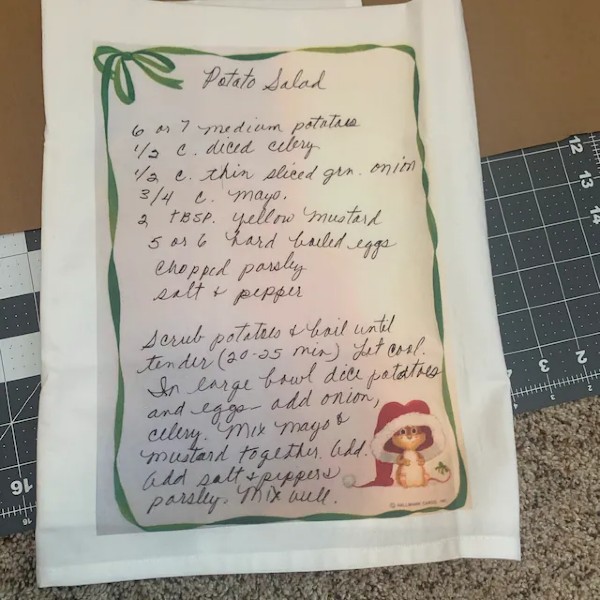 Potato Salad
6 or 7 medium potatoes
1/2 c. diced celery
1/2 c. thin sliced grn. onion
3/4 c. mayo.
2 TBSP. yellow mustard
5 or 6 hard boiled eggs
chopped parsley
salt & pepper
Scrub potatoes & boil until
tender (20-25 min) Let cool.
In large bowl dice potatoes
and eggs - add onion,
celery. Mix mayo &
mustard together. Add.
Add salt & pepper &
parsley. Mix well.
© HALLMARK CARDS, INC.
12
13
14
2
3
4
15
16